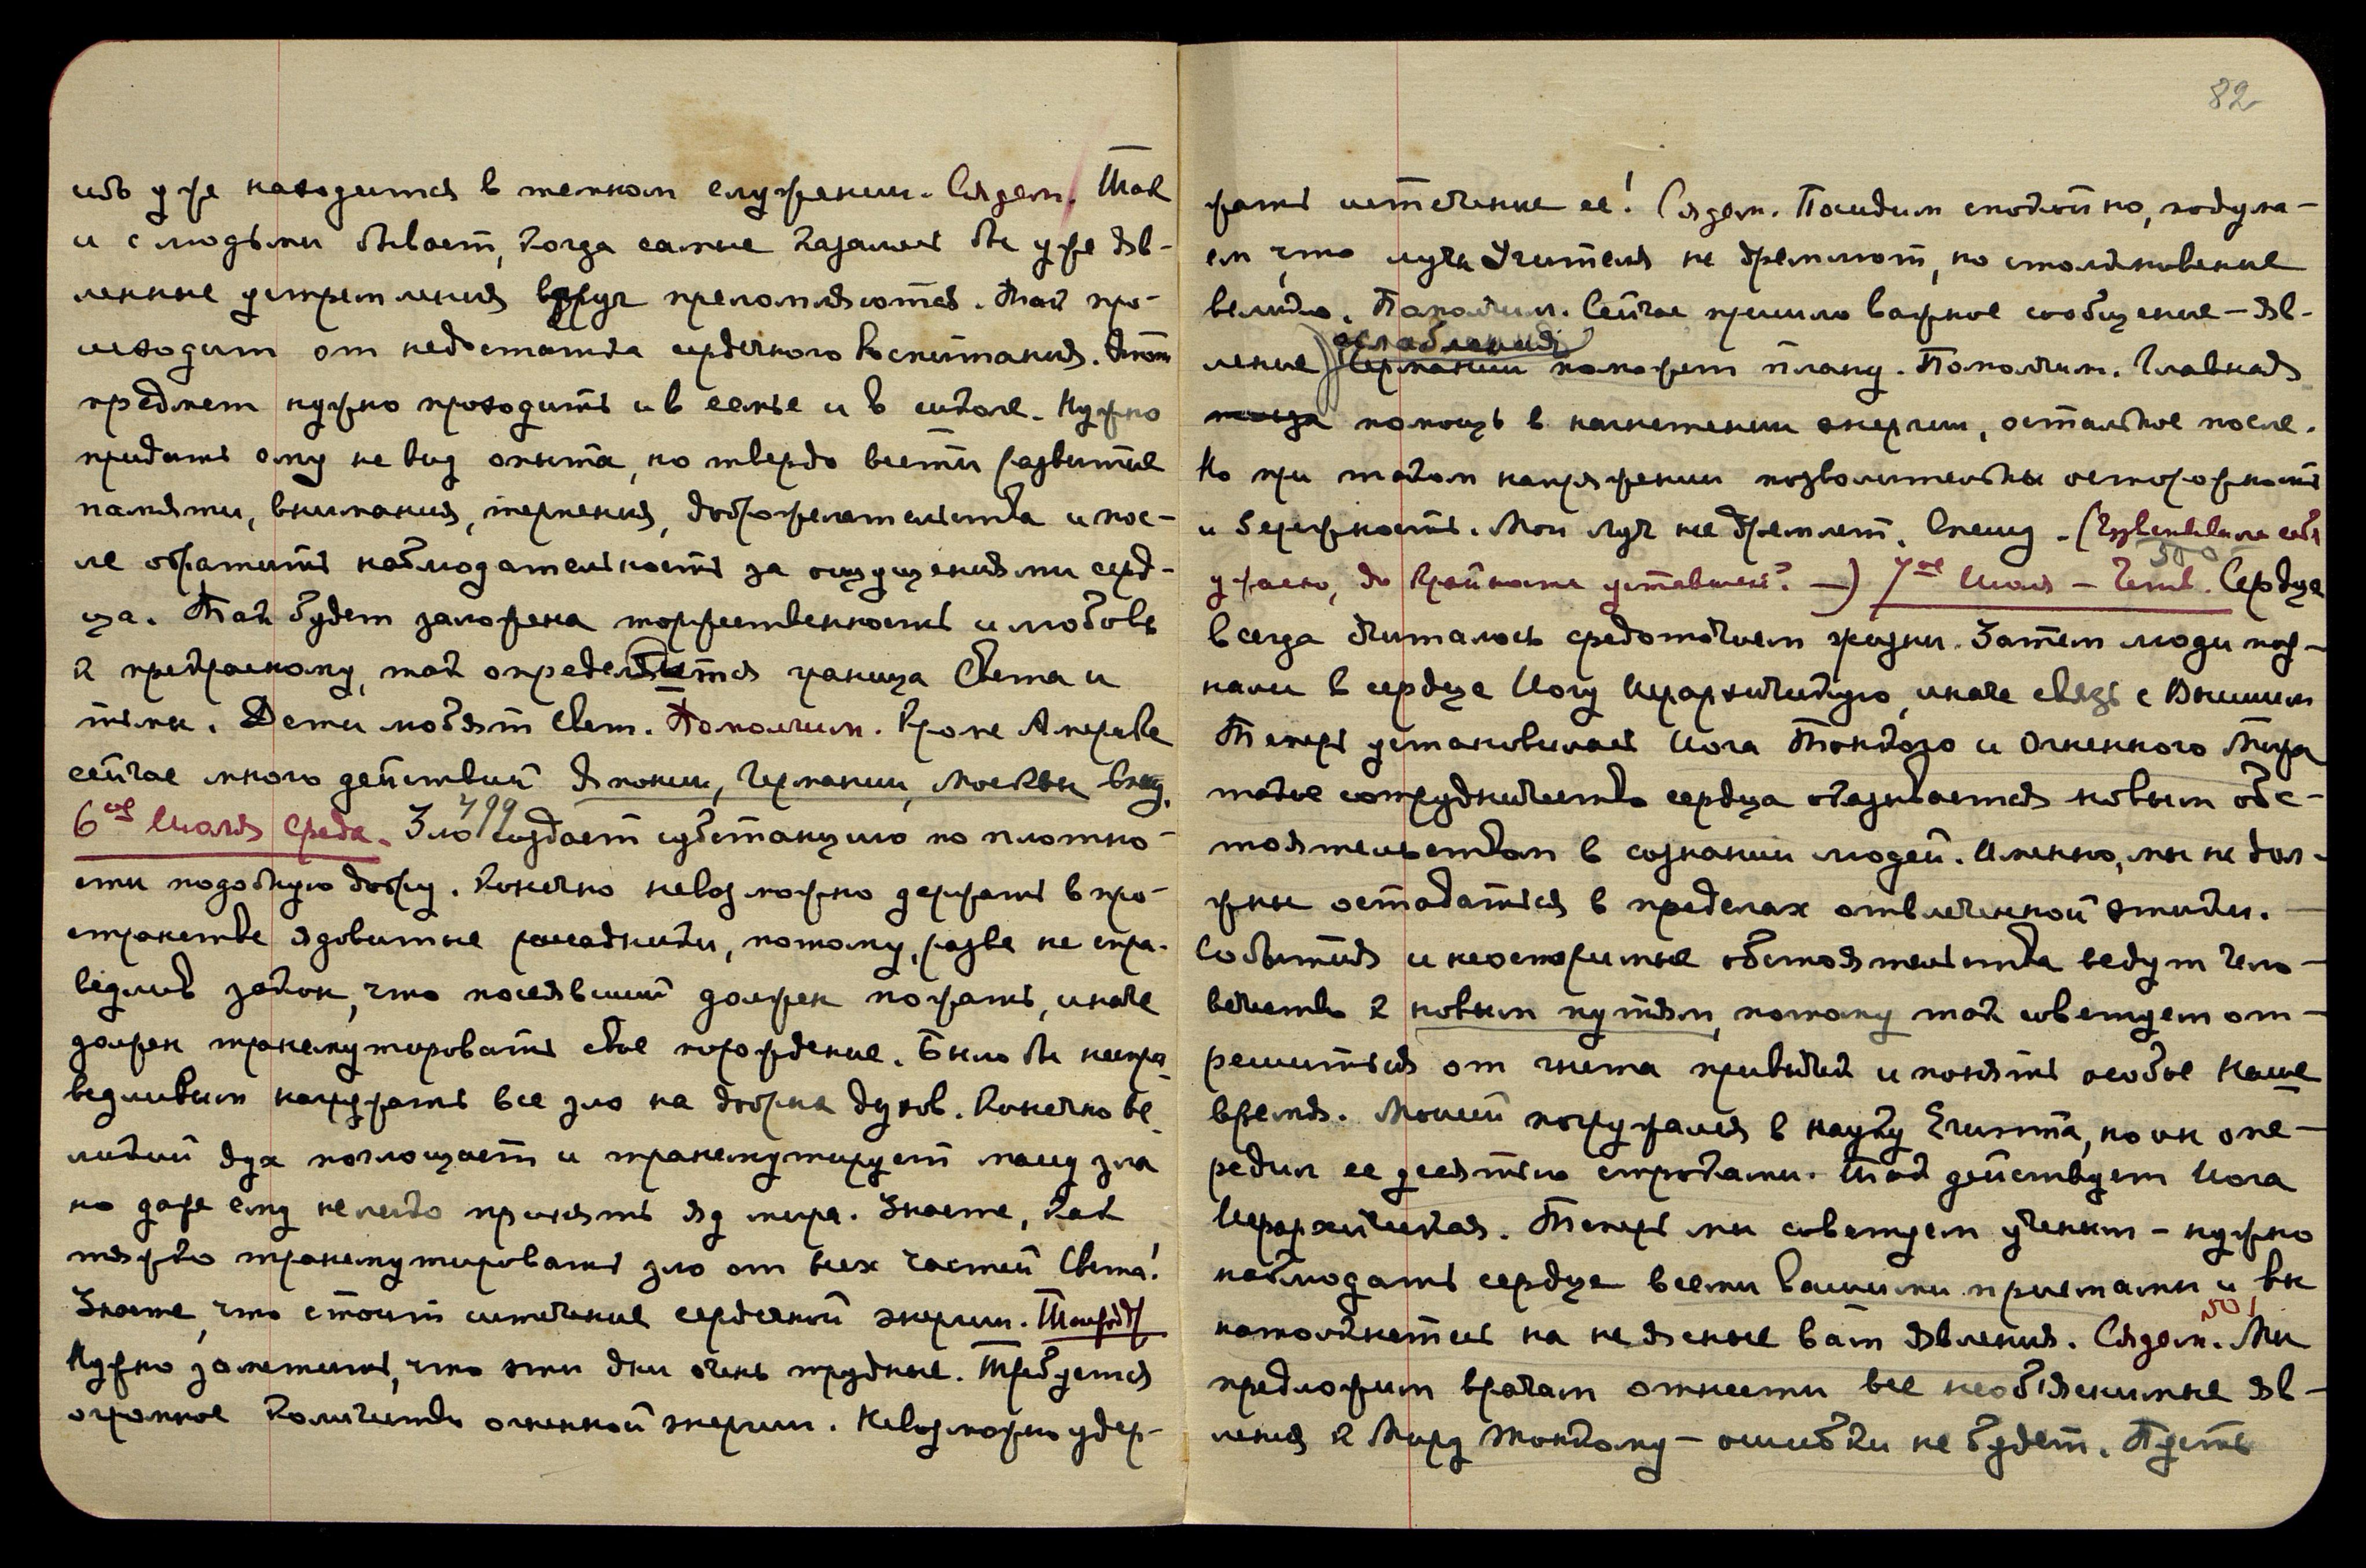 ибо уже находится в темном служении. Сядем. Так
и с людьми бывает, когда самые казалось бы уже яв-
ленные устремления вдруг преломляются. Так про-
исходит от недостатка сердечного воспитания. Этот
предмет нужно проходить и в семье и в школе. Нужно
придать ему не вид опыта, но твердо вести развитие
памяти, внимания, терпения, доброжелательства и пос-
ле обратить наблюдательность за ощущениями серд-
ца. Так будет заложена торжественность и любовь
к прекрасному, так определится граница Света и
тьмы. Дети любят Свет. Помолчим. Кроме Америке
сейчас много действий Японии, Германии, Москвы
499
6ое Июля Среда. Зло создает субстанцию по плотно-
сти подобную добру. Конечно невозможно держать в про-
странстве ядовитые рассадники, потому, разве не спра-
ведлив закон, что посеявший должен пожать, иначе
должен трансмутировать свое порождение. Было бы неспра
ведливым нагружать все зло на добрых духов. Конечно ве
ликий дух поглощает и трансмутирует массу зла
но даже ему нелегко принять яд мира. Знаете, как
тяжко трансмутировать зло от всех частей Света!
Знаете, что стоит истечение сердечной энергии.
Нужно заметить, что эти дни очень трудные. Требуется
огромное количество огненной энергии. Невозможно удер-
82
жать истечение ее! Сядем. Посидим спокойно, подума-
ем, что луч Учителя не дремлют, но столкновение
велико. Помолчим. Сейчас пришло важное сообщение - яв-
ослабления
ление Германии поможет плану. Помолчим. Главная
помощь в нагнетении энергии, остальное после.
Но при таком напряжении позволительны осторожность
и бережность. Мой луч не дремлет. Спешу. (Чувствовала себя
500
ужасно, до крайности уставшей? —) 7ое Июля - Четв. Сердце
всегда считалось средоточием жизни. Затем люди поз-
нали в сердце Йогу Иерархическую, иначе связь с Высшим
Теперь установилась Йога Тонкого и Огненного Мира
такое сотрудничество сердца оказывается новым обс-
тоятельством в сознании людей. Именно, мы не дол-
жны оставаться в пределах отвлеченной этики.
События и неоспоримые обстоятельства ведут чело-
вечество к новым путям, потому так советуем от-
решиться от гнета привычек и понять особое наше
время. Моисей погружался в науку Египта, но он опе-
редил ее десятью строками. Так действует Йога
Иерархическая. Теперь мы советуем ученым - нужно
наблюдать сердце всеми вашими приемами и вы
501
натолкнетесь на неясные вам явления. Сядем. Мы
предложим врачам отнести все необъяснимые яв-
ления к Миру Тонкому - ошибки не будет. Пусть